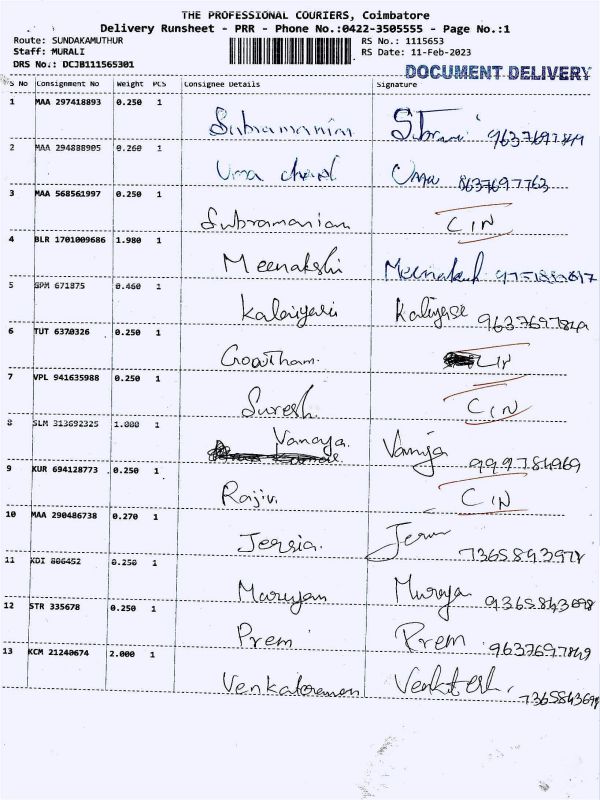 THE PROFESSIONAL COURIERS, Coimbatore
Delivery Runsheet - PRR - Phone No.:0422-3505555 - Page No.:1
Route: SUNDAKAMUTHUR RS No.: 1115653
Staff: MURALI RS Date: 11-Feb-2023
DRS No.: DCJB111565301
DOCUMENT DELIVERY
S No Consignment No Weight PCS Consignee Details Signature
1 MAA 297418893 0.250 1
Subramanian
2 MAA 294888905 0.260 1
Uma 8637697763
3 MAA 568561997 0.250 1
Subramanian CIN
4 BLR 1701009686 1.980 1
Meenakshi Meenaksh
5 GPM 671875 0.460 1
Kalaiyasi Kaliyase
6 TUT 6370326 0.250 1
Gowtham.
7 VPL 941635988 0.250 1
Suresh CIN
8 SLM 313692325 1.000 1
Vanaya. Vanija
9 KUR 694128773 0.250 1
Rajiv. CIN
10 MAA 290486738 0.270 1
Jersia. 7365843978
11 KDI 806452 0.250 1
Muruyan Muruya
12 STR 335678 0.250 1
Prem Prem 9637697849
13 KCM 21240674 2.000 1
Venkataraman Venkatesh,